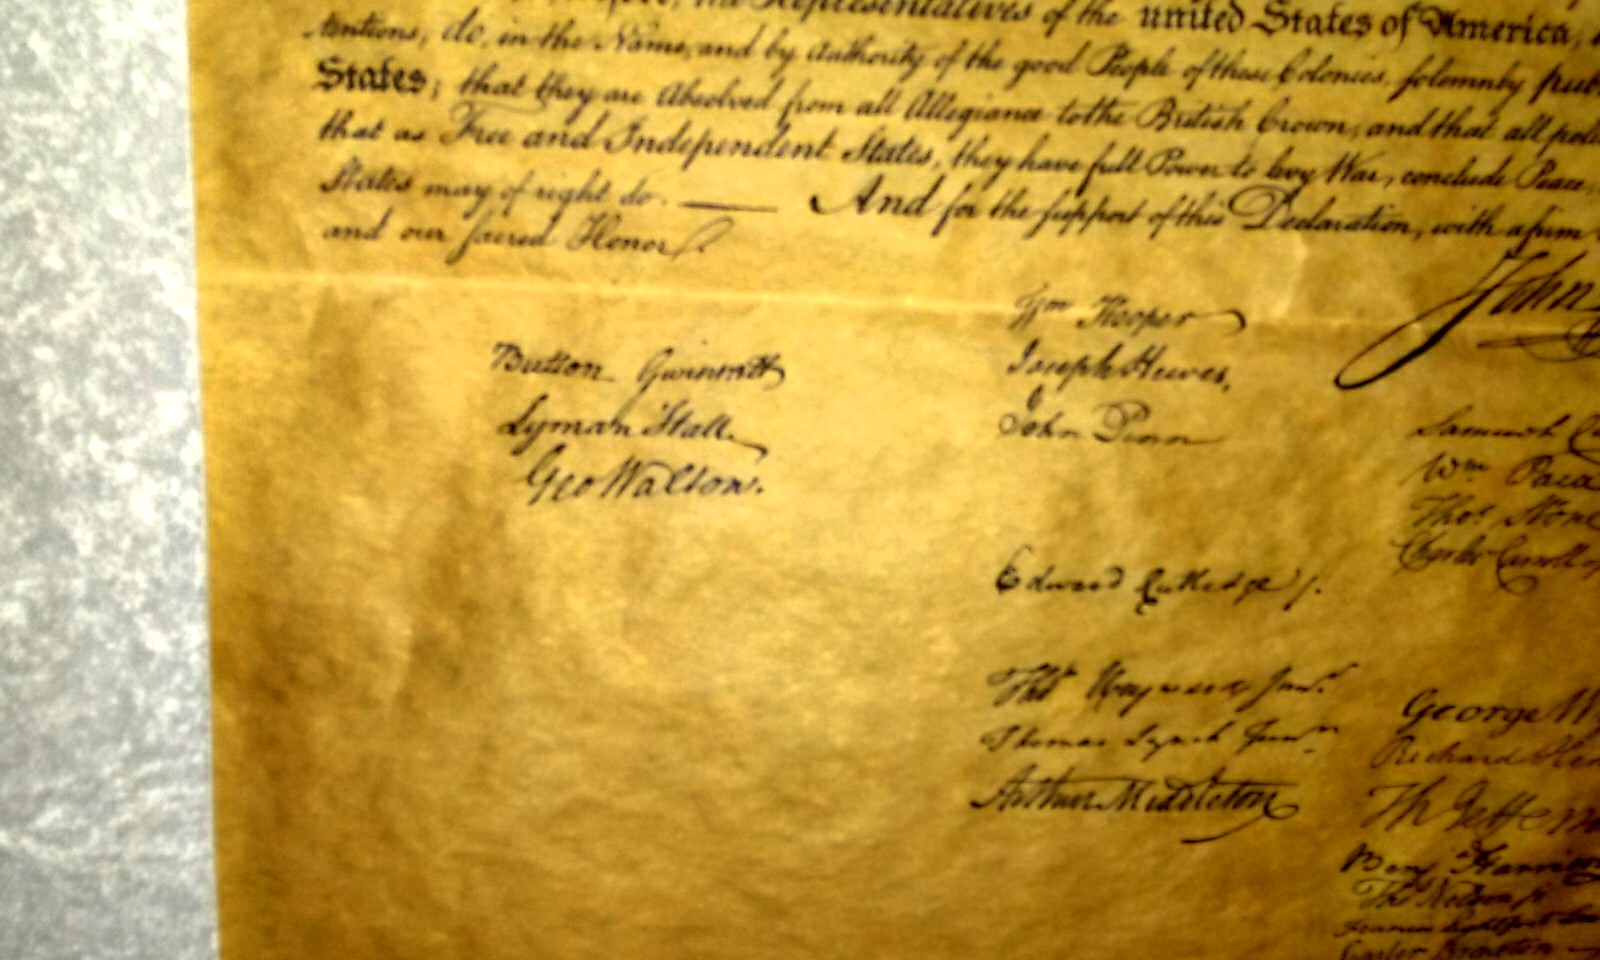 the Representatives of the united States of America,
tentions, do, in the Name, and by Authority of the good People of these Colonies, solemnly
States; that they are Absolved from all Allegiance to the British Crown, and that all
that as Free and Independent States, they have full Power to levy War, conclude Peace,
States may of right do. — And for the support of this Declaration, with a firm
and our sacred Honor.
John
Button Gwinnett
Lyman Hall.
Geo Walton.
Wm Hooper
Joseph Hewes,
John Penn
Edward Rutledge /.
Thos Heyward Junr.
Thomas Lynch Junr.
Arthur Middleton
Samuel
Wm Paca
Thos Stone
Charles Carroll of
George
Richard
Th Jeffe
Benj Harris
Thos Nelson jr
Francis Lightfoot
Carter Braxton